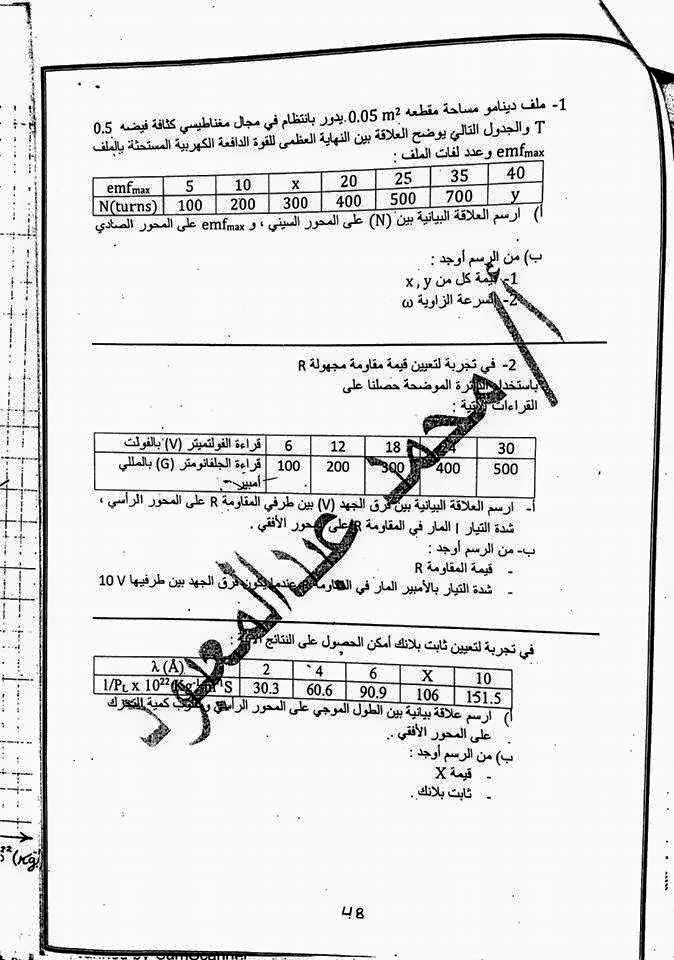 1- ملف دينامو مساحة مقطعه 0.05 m² يدور بانتظام في مجال مغناطيسي كثافة فيضه 0.5
T والجدول التالي يوضح العلاقة بين النهاية العظمى للقوة الدافعة الكهربية المستحثة بالملف
emfmax وعدد لفات الملف :
emfmax 5 10 x 20 25 35 40
N(turns) 100 200 300 400 500 700 y
أ) ارسم العلاقة البيانية بين (N) على المحور السيني ، و emfmax على المحور الصادي
ب) من الرسم أوجد :
1- قيمة كل من x , y
2- السرعة الزاوية ω
2- في تجربة لتعيين قيمة مقاومة مجهولة R
باستخدام الدائرة الموضحة حصلنا على
القراءات الآتية :
قراءة الفولتميتر (V) بالفولت 6 12 18 30
قراءة الجلفانومتر (G) بالمللي أمبير 100 200 300 400 500
أ- ارسم العلاقة البيانية بين فرق الجهد (V) بين طرفي المقاومة R على المحور الرأسي ،
شدة التيار I المار في المقاومة R على المحور الأفقي .
ب- من الرسم أوجد :
- قيمة المقاومة R
- شدة التيار بالأمبير المار في المقاومة عندما يكون فرق الجهد بين طرفيها 10 V
في تجربة لتعيين ثابت بلانك أمكن الحصول على النتائج الآتية :
λ (Å) 2 4 6 X 10
1/PL x 10²² Kg⁻¹m⁻¹S 30.3 60.6 90.9 106 151.5
أ) ارسم علاقة بيانية بين الطول الموجي على المحور الرأسي ومقلوب كمية التحرك
على المحور الأفقي .
ب) من الرسم أوجد :
- قيمة X
- ثابت بلانك .
محمد عبدالمعبود
48